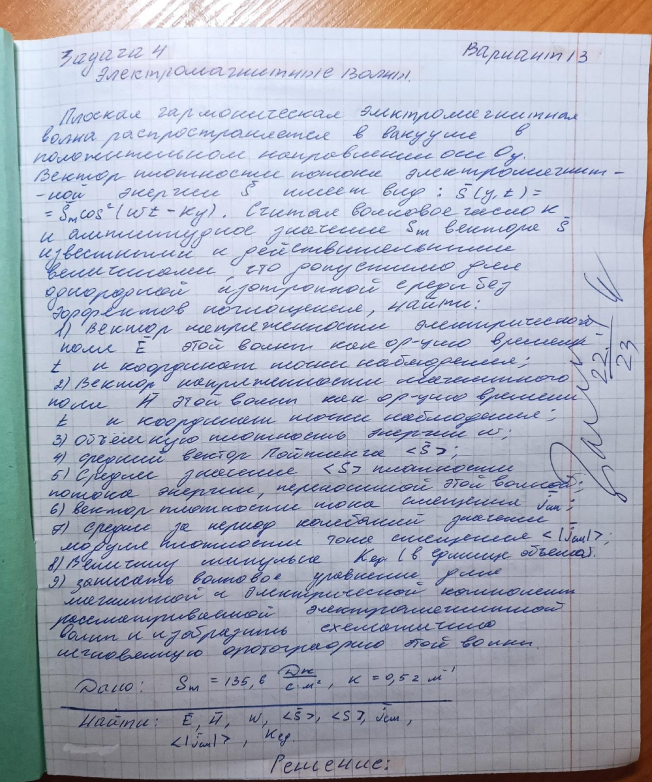 Задача 4 Вариант 13
Электромагнитные волны.
Плоская гармоническая электромагнитная
волна распространяется в вакууме в
положительном направлении оси Oy.
Вектор плотности потока электромагнит-
-ной энергии S̄ имеет вид: S̄(y,t) =
= S̄m cos²(wt - ky). Считая волновое число K
и амплитудное значение Sm вектора S̄
известными и действительными
величинами, что допустимо для
однородной изотропной среды без
эффектов поглощения, найти:
1) Вектор напряженности электрического
поля Ē этой волны как ф-цию времени
t и координат точки наблюдения;
2) Вектор напряженности магнитного
поля H̄ этой волны как ф-цию времени
t и координат точки наблюдения;
3) Объёмную плотность энергии w;
4) средний вектор Пойтинга <S̄>;
5) Среднее значение <S> плотности
потока энергии, переносимой этой волной;
6) вектор плотности тока смещения j̄см;
7) среднее за период колебаний значение
модуля плотности тока смещения <|j̄см|>;
8) Величину импульса Kед (в единице объема).
9) записать волновое уравнение для
магнитной и электрической компонент
рассматриваемой электромагнитной
волны и изобразить схематично
мгновенную фотографию этой волны.
Дано: Sm = 135,6 Дж/с·м², K = 0,52 м⁻¹
Найти: Ē, H̄, w, <S̄>, <S>, j̄см,
<|j̄см|>, Kед.
Решение:
22.1
23